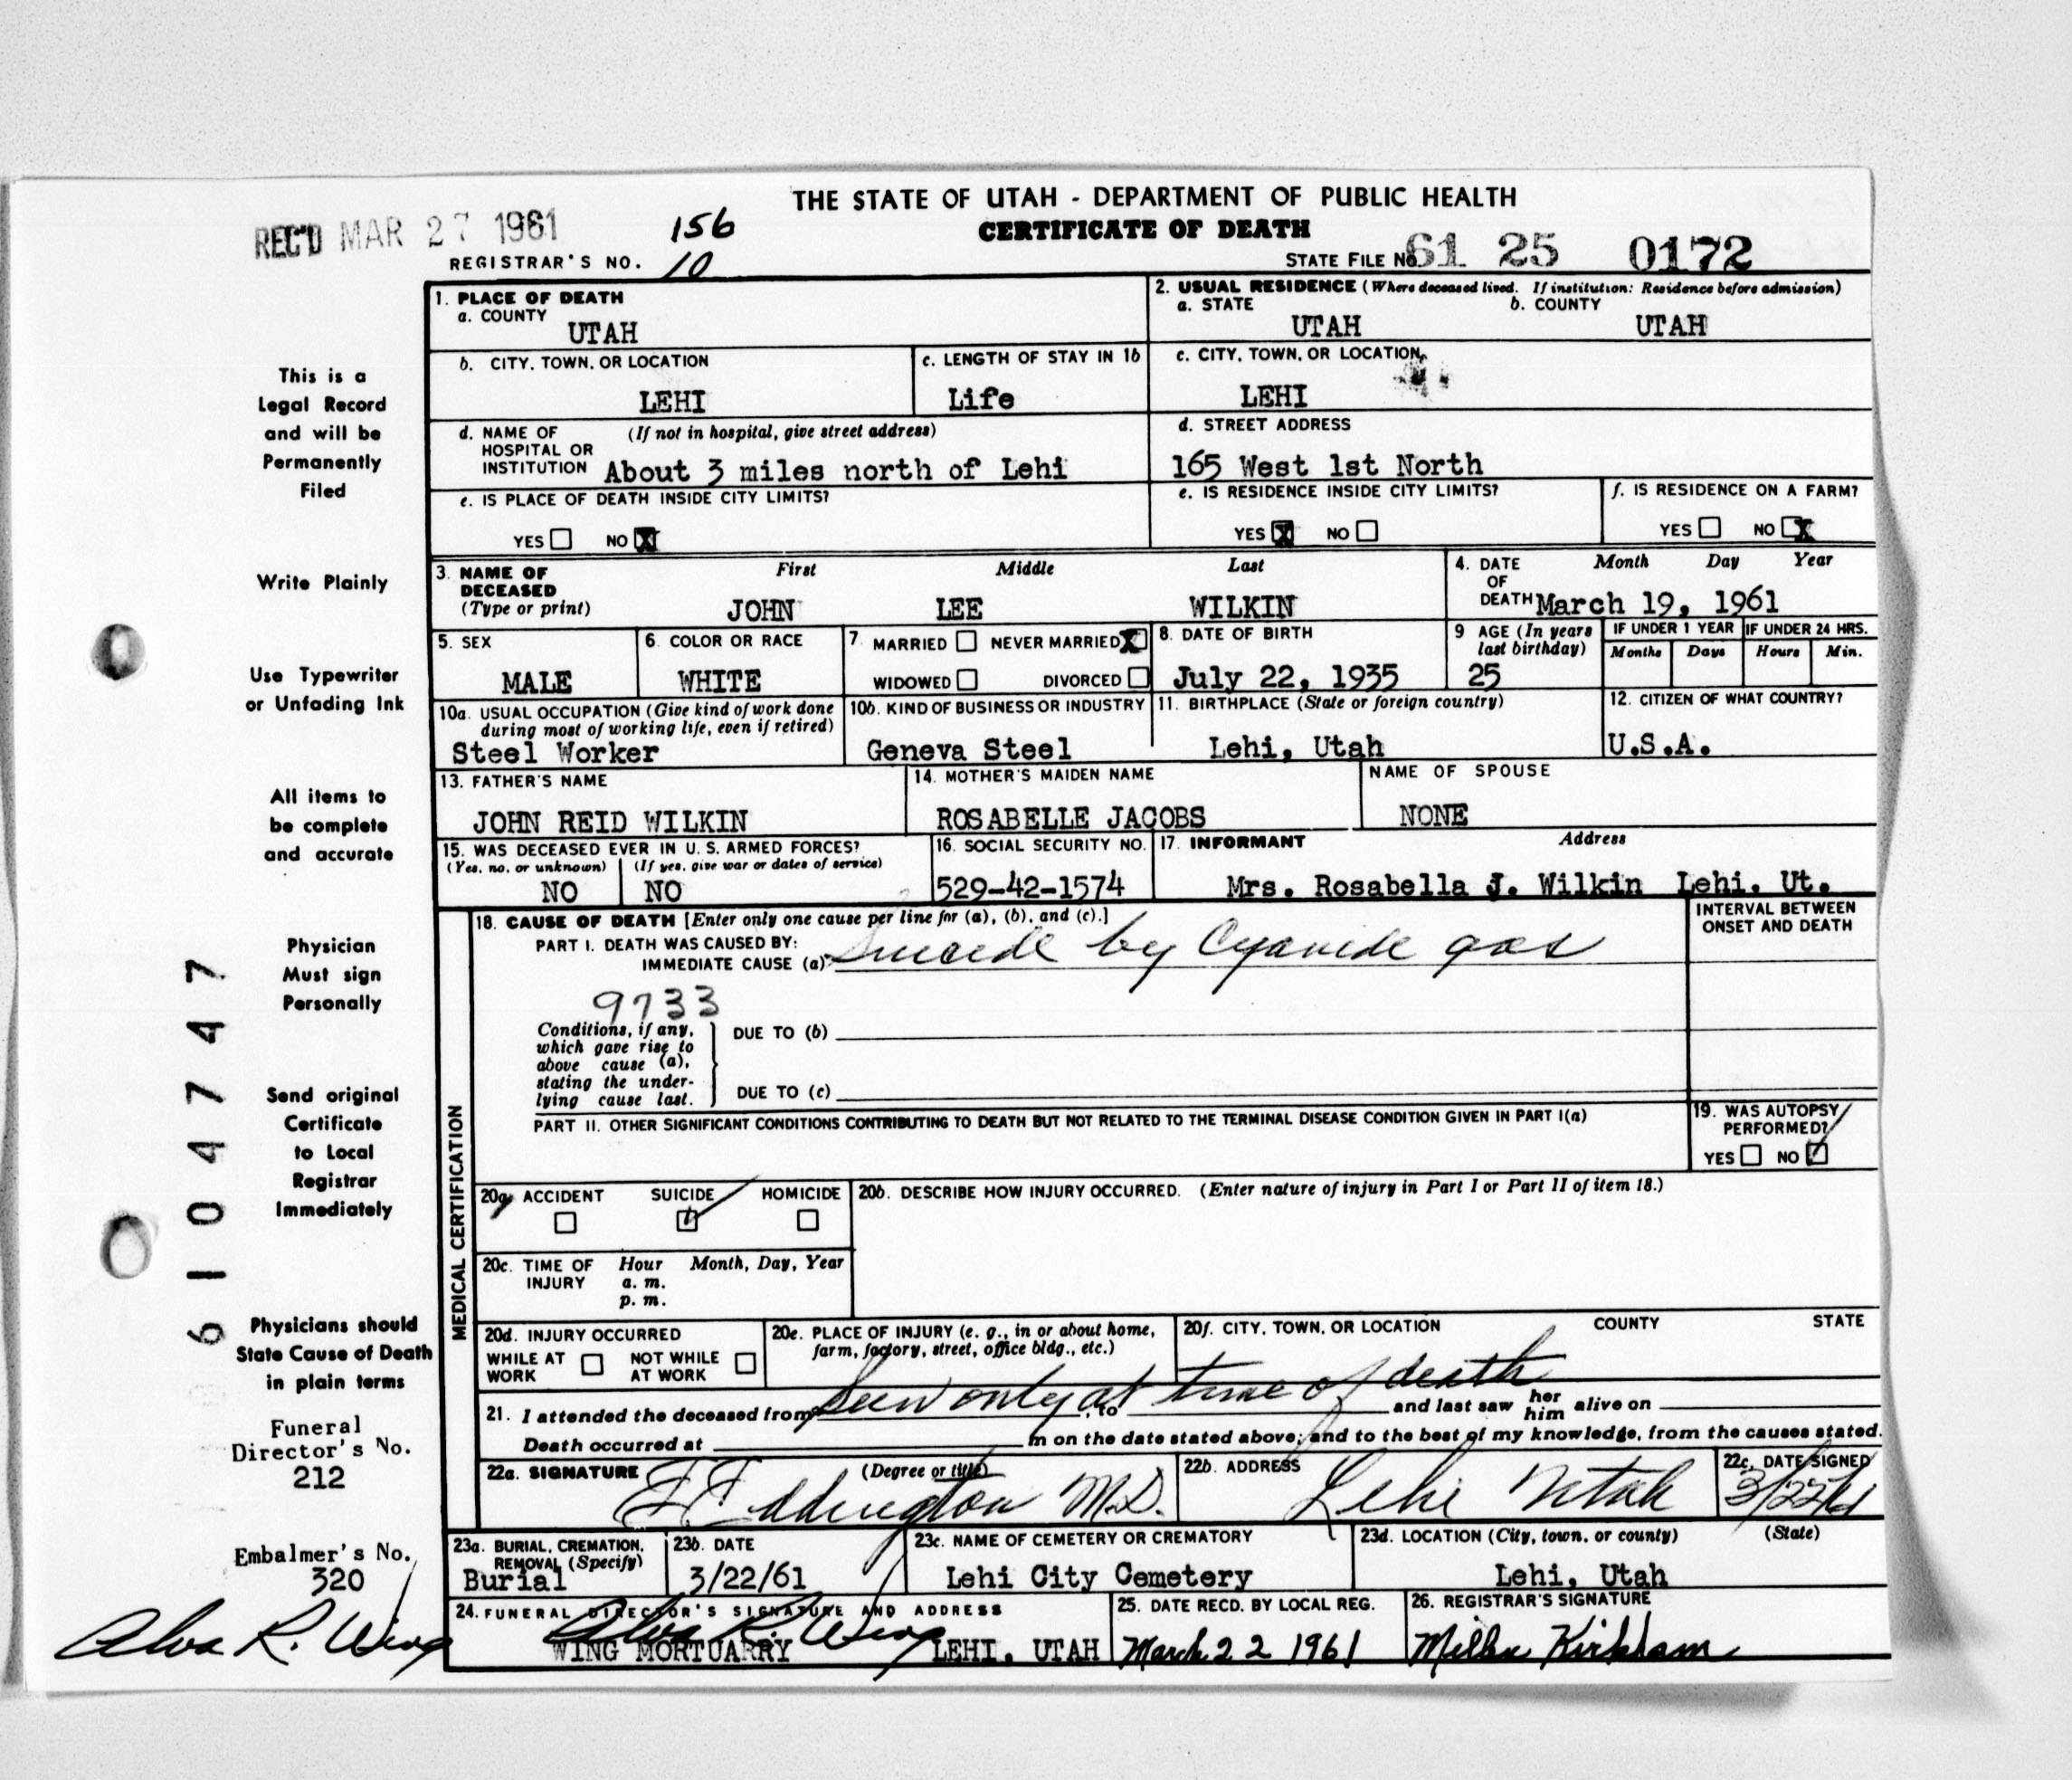 THE STATE OF UTAH - DEPARTMENT OF PUBLIC HEALTH
CERTIFICATE OF DEATH
REC'D MAR 27 1961
156
REGISTRAR'S NO. 10
STATE FILE NO. 61 25 0172
This is a
Legal Record
and will be
Permanently
Filed
Write Plainly
Use Typewriter
or Unfading Ink
All items to
be complete
and accurate
Physician
Must sign
Personally
Send original
Certificate
to Local
Registrar
Immediately
Physicians should
State Cause of Death
in plain terms
Funeral
Director's No.
212
Embalmer's No.
320
Alva R. Wing
6104747
1. PLACE OF DEATH
a. COUNTY
UTAH
2. USUAL RESIDENCE (Where deceased lived. If institution: Residence before admission)
a. STATE b. COUNTY
UTAH UTAH
b. CITY, TOWN, OR LOCATION
LEHI
c. LENGTH OF STAY IN 1b
Life
c. CITY, TOWN, OR LOCATION
LEHI
d. NAME OF (If not in hospital, give street address)
HOSPITAL OR
INSTITUTION About 3 miles north of Lehi
d. STREET ADDRESS
165 West 1st North
e. IS PLACE OF DEATH INSIDE CITY LIMITS?
YES NO X
e. IS RESIDENCE INSIDE CITY LIMITS?
YES X NO
f. IS RESIDENCE ON A FARM?
YES NO X
3. NAME OF First Middle Last
DECEASED
(Type or print) JOHN LEE WILKIN
4. DATE Month Day Year
OF
DEATH March 19, 1961
5. SEX
MALE
6. COLOR OR RACE
WHITE
7. MARRIED NEVER MARRIED X
WIDOWED DIVORCED
8. DATE OF BIRTH
July 22, 1935
9 AGE (In years
last birthday)
25
IF UNDER 1 YEAR IF UNDER 24 HRS.
Months Days Hours Min.
10a. USUAL OCCUPATION (Give kind of work done
during most of working life, even if retired)
Steel Worker
10b. KIND OF BUSINESS OR INDUSTRY
Geneva Steel
11. BIRTHPLACE (State or foreign country)
Lehi, Utah
12. CITIZEN OF WHAT COUNTRY?
U.S.A.
13. FATHER'S NAME
JOHN REID WILKIN
14. MOTHER'S MAIDEN NAME
ROSABELLE JACOBS
NAME OF SPOUSE
NONE
15. WAS DECEASED EVER IN U. S. ARMED FORCES?
(Yes, no, or unknown) (If yes, give war or dates of service)
NO NO
16. SOCIAL SECURITY NO.
529-42-1574
17. INFORMANT Address
Mrs. Rosabella J. Wilkin Lehi. Ut.
MEDICAL CERTIFICATION
18. CAUSE OF DEATH [Enter only one cause per line for (a), (b), and (c).]
PART I. DEATH WAS CAUSED BY:
IMMEDIATE CAUSE (a) Suicide by Cyanide gas
INTERVAL BETWEEN
ONSET AND DEATH
9733
Conditions, if any,
which gave rise to
above cause (a),
stating the under-
lying cause last.
DUE TO (b)
DUE TO (c)
PART II. OTHER SIGNIFICANT CONDITIONS CONTRIBUTING TO DEATH BUT NOT RELATED TO THE TERMINAL DISEASE CONDITION GIVEN IN PART I(a)
19. WAS AUTOPSY
PERFORMED?
YES NO
20a. ACCIDENT SUICIDE HOMICIDE
20b. DESCRIBE HOW INJURY OCCURRED. (Enter nature of injury in Part I or Part II of item 18.)
20c. TIME OF Hour Month, Day, Year
INJURY a. m.
p. m.
20d. INJURY OCCURRED
WHILE AT NOT WHILE
WORK AT WORK
20e. PLACE OF INJURY (e. g., in or about home,
farm, factory, street, office bldg., etc.)
20f. CITY, TOWN, OR LOCATION COUNTY STATE
Seen only at time of death
21. I attended the deceased from , to and last saw her him alive on
Death occurred at m on the date stated above; and to the best of my knowledge, from the causes stated.
22a. SIGNATURE (Degree or title)
Eddington M.D.
22b. ADDRESS
Lehi Utah
22c. DATE SIGNED
3/22/61
23a. BURIAL, CREMATION,
REMOVAL (Specify)
Burial
23b. DATE
3/22/61
23c. NAME OF CEMETERY OR CREMATORY
Lehi City Cemetery
23d. LOCATION (City, town, or county) (State)
Lehi, Utah
24. FUNERAL DIRECTOR'S SIGNATURE AND ADDRESS
Alva R. Wing
WING MORTUARRY LEHI, UTAH
25. DATE RECD. BY LOCAL REG.
March 22 1961
26. REGISTRAR'S SIGNATURE
Melba Kirkham